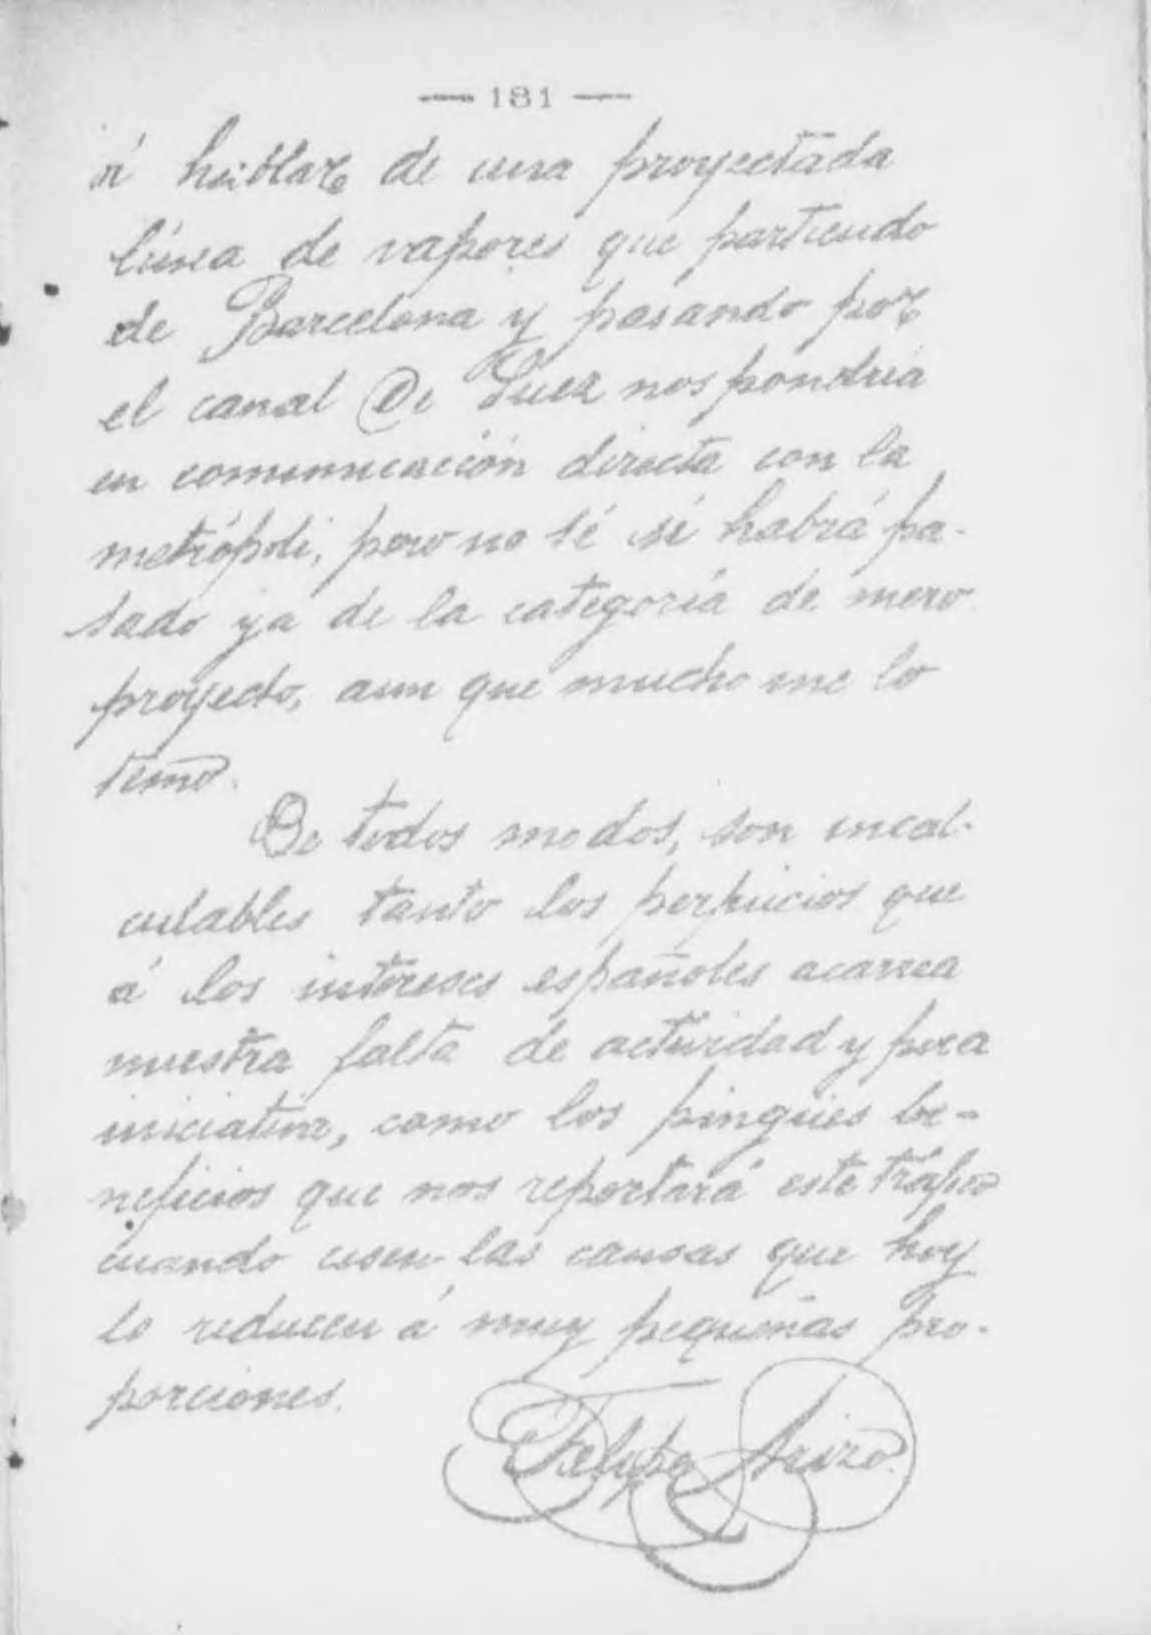 — 181 —
á hablar de una proyectada
línea de vapores que partiendo
de Barcelona y pasando por
el canal De Suez nos pondría
en comunicación directa con la
metrópoli, pero no sé si habrá pa-
sado ya de la categoría de mero
proyecto, aun que mucho me lo
temo.
De todos modos, son incal-
culables tanto los perjuicios que
á los intereses españoles acarrea
nuestra falta de actividad y poca
iniciativa, como los pingües be-
neficios que nos reportará este tráfico
cuando cesen las causas que hoy
lo reducen á muy pequeñas pro-
porciones.
Felipe